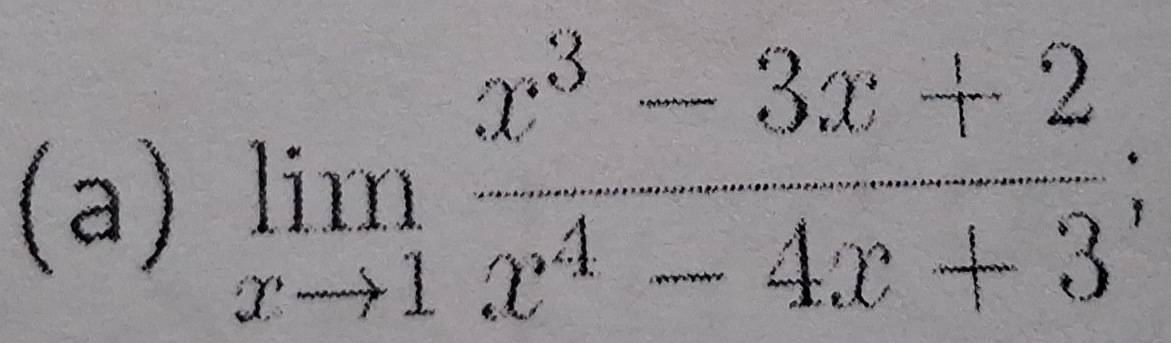 (a) lim_{x→1} \frac{x^3 - 3x + 2}{x^4 - 4x + 3};